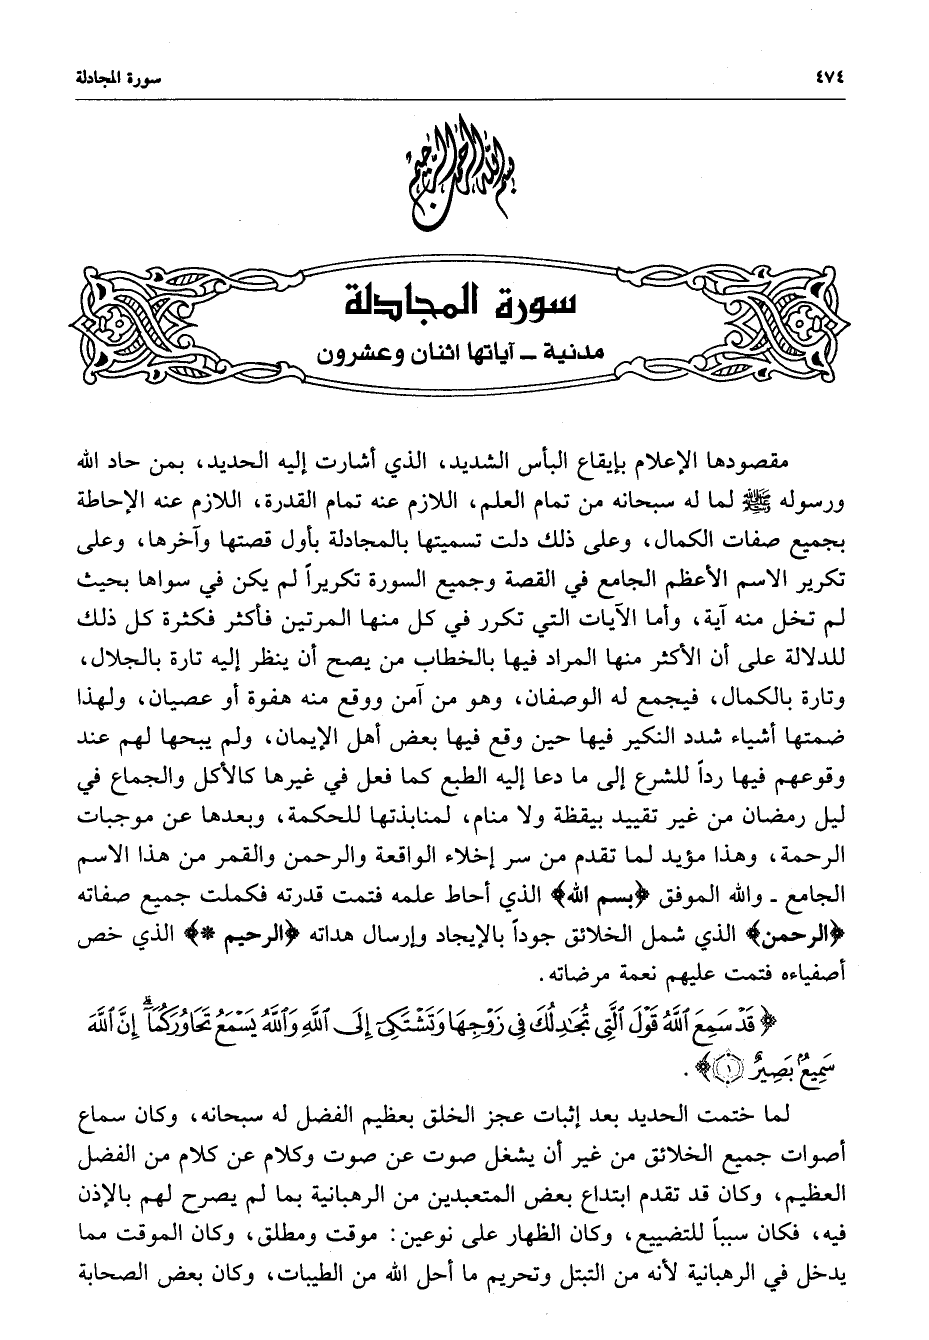 ٤٧٤
سورة المجادلة
بسم الله الرحمن الرحيم
سورة المجادلة
مدنية ـ آياتها اثنان وعشرون
مقصودها الإعلام بإيقاع البأس الشديد، الذي أشارت إليه الحديد، بمن حاد الله
ورسوله ﷺ لما له سبحانه من تمام العلم، اللازم عنه تمام القدرة، اللازم عنه الإحاطة
بجميع صفات الكمال، وعلى ذلك دلت تسميتها بالمجادلة بأول قصتها وآخرها، وعلى
تكرير الاسم الأعظم الجامع في القصة وجميع السورة تكريراً لم يكن في سواها بحيث
لم تخل منه آية، وأما الآيات التي تكرر في كل منها المرتين فأكثر فكثرة كل ذلك
للدلالة على أن الأكثر منها المراد فيها بالخطاب من يصح أن ينظر إليه تارة بالجلال،
وتارة بالكمال، فيجمع له الوصفان، وهو من آمن ووقع منه هفوة أو عصيان، ولهذا
ضمتها أشياء شدد النكير فيها حين وقع فيها بعض أهل الإيمان، ولم يبحها لهم عند
وقوعهم فيها رداً للشرع إلى ما دعا إليه الطبع كما فعل في غيرها كالأكل والجماع في
ليل رمضان من غير تقييد بيقظة ولا منام، لمنابذتها للحكمة، وبعدها عن موجبات
الرحمة، وهذا مؤيد لما تقدم من سر إخلاء الواقعة والرحمن والقمر من هذا الاسم
الجامع ـ والله الموفق ﴿بسم الله﴾ الذي أحاط علمه فتمت قدرته فكملت جميع صفاته
﴿الرحمن﴾ الذي شمل الخلائق جوداً بالإيجاد وإرسال هداته ﴿الرحيم *﴾ الذي خص
أصفياءه فتمت عليهم نعمة مرضاته.
﴿قَدْ سَمِعَ ٱللَّهُ قَوْلَ ٱلَّتِي تُجَٰدِلُكَ فِي زَوْجِهَا وَتَشْتَكِيٓ إِلَى ٱللَّهِ وَٱللَّهُ يَسْمَعُ تَحَاوُرَكُمَآۚ إِنَّ ٱللَّهَ
سَمِيعٌۢ بَصِيرٌ ١﴾.
لما ختمت الحديد بعد إثبات عجز الخلق بعظيم الفضل له سبحانه، وكان سماع
أصوات جميع الخلائق من غير أن يشغل صوت عن صوت وكلام عن كلام من الفضل
العظيم، وكان قد تقدم ابتداع بعض المتعبدين من الرهبانية بما لم يصرح لهم بالإذن
فيه، فكان سبباً للتضييع، وكان الظهار على نوعين: موقت ومطلق، وكان الموقت مما
يدخل في الرهبانية لأنه من التبتل وتحريم ما أحل الله من الطيبات، وكان بعض الصحابة